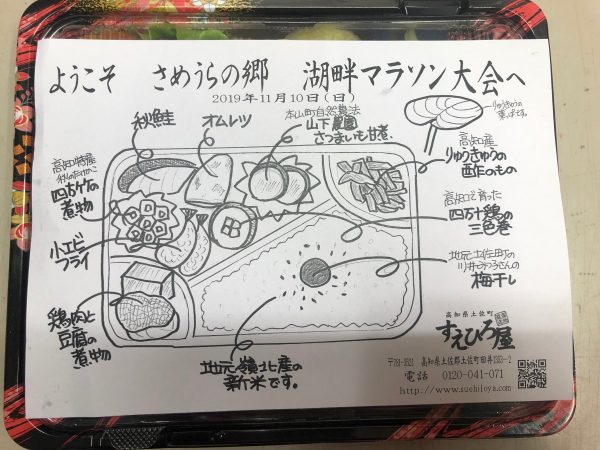 ようこそ さめうらの郷 湖畔マラソン大会へ
2019年11月10日(日)
秋鮭
オムレツ
本山町自然農法
山下農園
さつまいも甘煮
りゅうきゅうの
葉っぱです。
高知特産
秋のたけのこ
四方竹の
煮物
高知産
りゅうきゅうの
酢のもの
高知で育った
四万十鶏の
三色巻
小エビ
フライ
地元土佐町の
川井みつ子さんの
梅干し
鶏肉と
豆腐の
煮物
地元嶺北産の
新米です。
高知県土佐町
すえひろ屋
高知県土佐郡土佐町田井1353-2
電話 0120-041-071
http://www.suehiroya.com